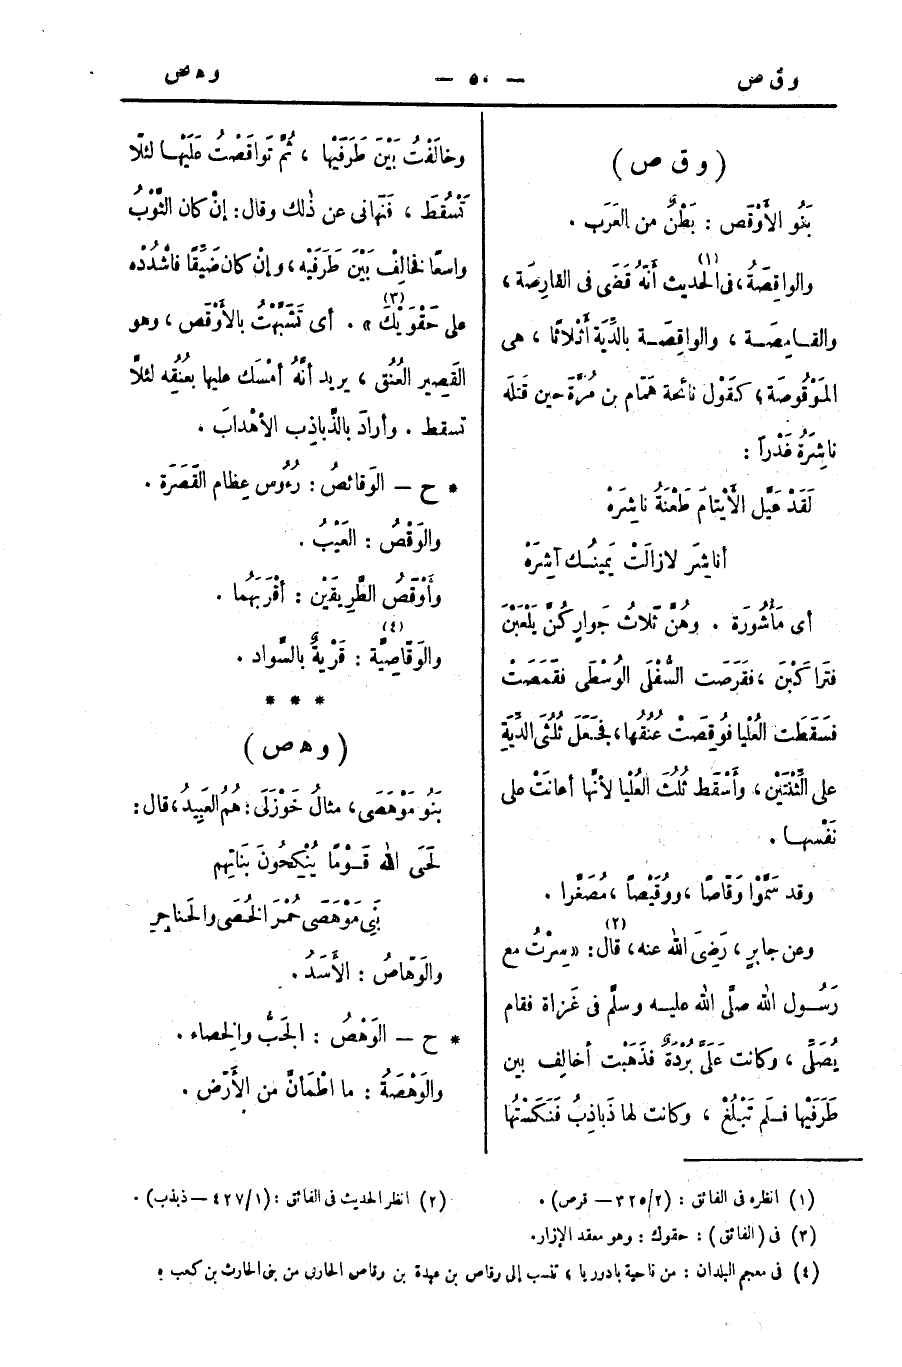 وق ص — ٥٠ — وهص
( و ق ص )
بَنُو الأَوْقَص : بَطْنٌ من العَرَب .
والواقِصَةُ ، فى الحديث (١) أنَّه قَضَى فى القارِصَة ،
والقـامِصَـة ، والواقِصَـة بالدِّيَة أَثْلاثًا ، هى
المَوْقُوصَة ؛ كقَوْل نائحة هَمّام بن مُرَّة حين قتله
ناشِرَةُ غَدْراً :
لَقَدْ عَيَّل الأَيْتامَ طَعْنَةُ ناشِرَهْ
أناشِرَ لازالَتْ يَمِينُـك آشِرَهْ
أى مَأْشُورَة . وهُنّ ثَلاثُ جَوارٍ كُنَّ يَلْعَبْنَ
فتَراكَبْنَ ، فقَرَصَت السُّفْلَى الوُسْطَى فقَمَصَتْ
فسَقَطَت العُلْيا فوُقِصَتْ عُنُقها ، فجَعَلَ ثُلُثَى الدِّيَةِ
على الثِّنْتَيْن ، وأَسْقَط ثُلُثَ العُلْيا لأنَّها أعانَتْ على
نَفْسِهـا .
وقد سَمَّوْا وَقّاصًا ، ووُقَيْصاً ، مُصَغَّرا .
وعن جابرٍ ، رَضِىَ الله عنه ، قال (٢) : « سِرْتُ مع
رَسُـول الله صلَّى الله عليـه وسلَّم فى غَزاة فقام
يُصَلِّى ، وكانت عَلَىَّ بُرْدَةٌ فذَهَبْت أخالِف بين
طَرَفَيْها فـلَم تَبْلُغْ ، وكانت لها ذَباذِبُ فنَكَسْتُها
وخالَفْتُ بَيْن طَرَفَيْها ، ثُمَّ تَواقَصْتُ عَلَيْهـا لئلّا
تَسْقُطَ ، فنَهَانى عن ذٰلك وقال : إنْ كان الثَّوْبُ
واسعًا فخالِفْ بَيْنَ طَرَفَيْه ، وإنْ كان ضَيِّقًا فاشْدُدْه
على حَقْوَيْكَ (٣) » . أى تَشَبَّهْتُ بالأَوْقَص ، وهو
القَصِير العُنُق ، يريد أنَّه أمْسَك عليها بعُنُقِه لئلاَّ
تسقط . وأرادَ بالذَّباذِب الأهْدابَ .
* ح — الوَقائصُ : رُءُوس عِظام القَصَرَة .
والوَقْصُ : العَيْبُ .
وأَوْقَصُ الطَّرِيقَيْن : أقْرَبَهُما .
والوَقّاصِيَّة (٤) : قَرْيةٌ بالسَّواد .
* * *
( و هـ ص )
بَنُو مَوْهَصَى ، مثالُ خَوْزَلَى : هُمُ العَبِيدُ ، قال :
لَحَى الله قَـوْمًا يُنْكِحُونَ بَناتِهِم
بَنِى مَوْهَصَى حُمْرَ الخُصَى والحَناجِرِ
والوَهّاصُ : الأَسَدُ .
* ح — الوَهْصُ : الجَبُّ والخِصاء .
والوَهْصَةُ : ما اطْمَأنَّ من الأَرْض .
(١) انظره فى الفائق : (٣٢٥/٢ — قرص) .
(٢) انظر الحديث فى الفائق : (٤٢٧/١ — ذبذب) .
(٣) فى (الفائق) : حقوك : وهو معقد الإزار .
(٤) فى معجم البلدان : من ناحية بادوريا ، تنسب إلى وقاص بن عبدة بن وقاص الحارثى من بنى الحارث بن كعب .